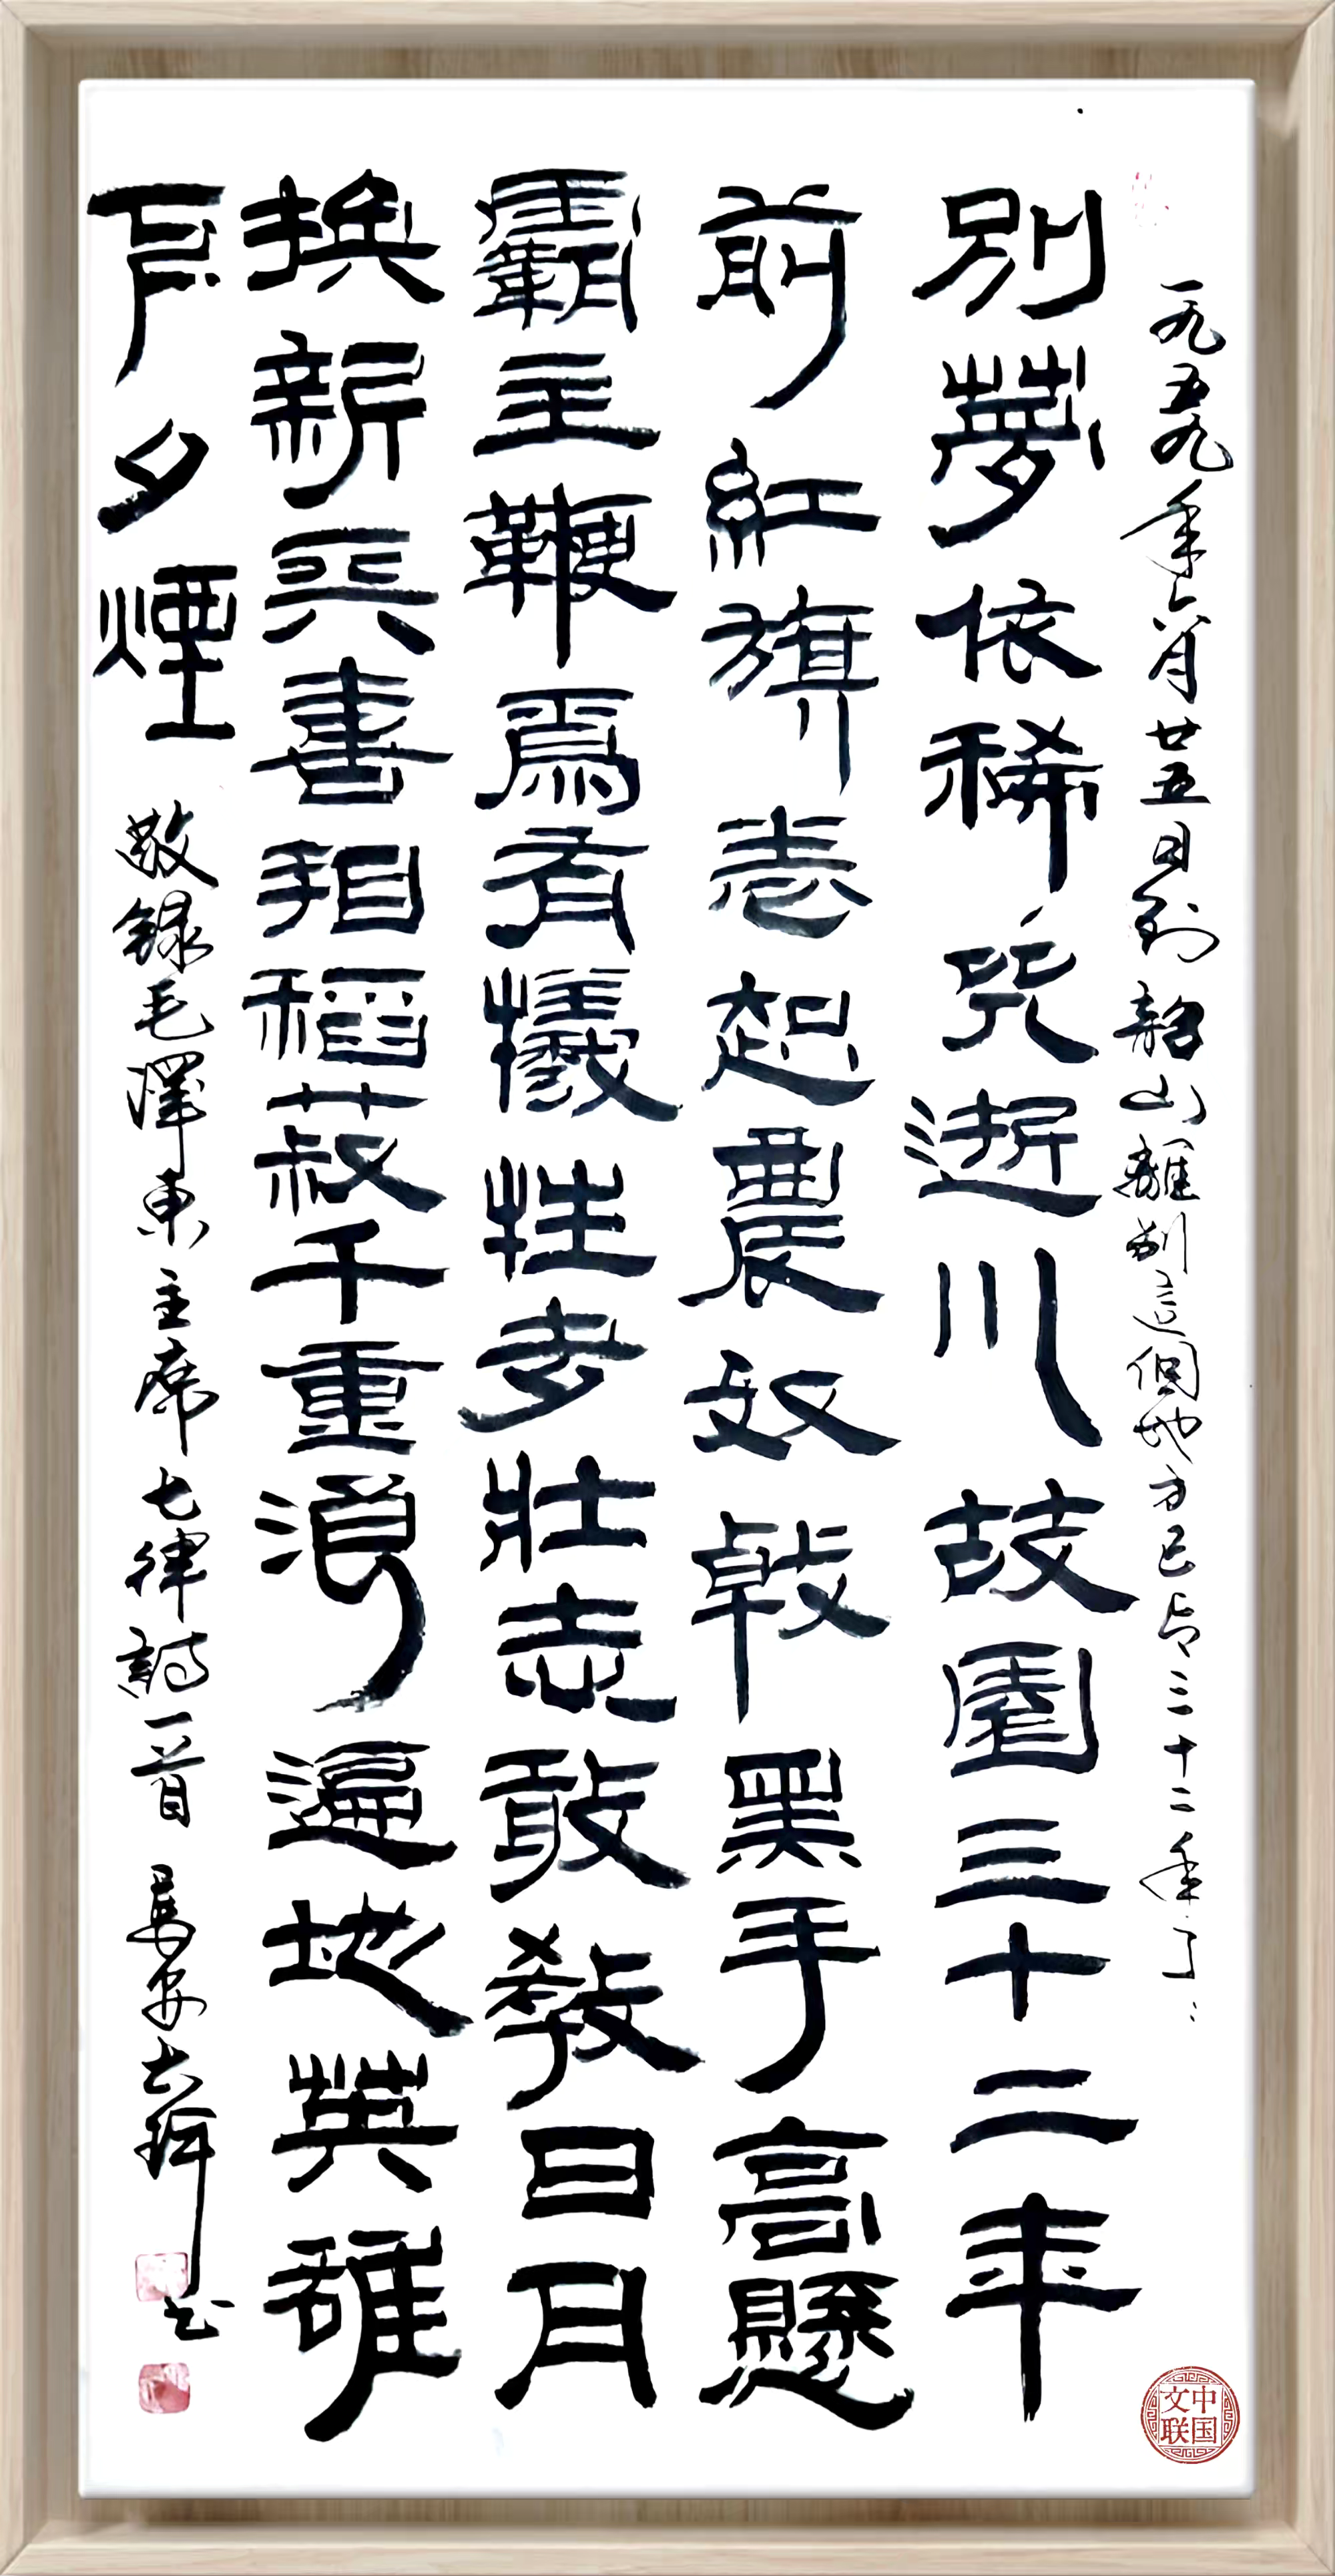 一九五九年六月廿五日到韶山離別這個地方已有三十二年了
別夢依稀咒逝川故園三十二年
前紅旗卷起農奴戟黑手高懸
霸主鞭爲有犧牲多壯志敢教日月
換新天喜看稻菽千重浪遍地英雄
下夕煙 敬録毛澤東主席七律詩一首 馬安 书
中国文联